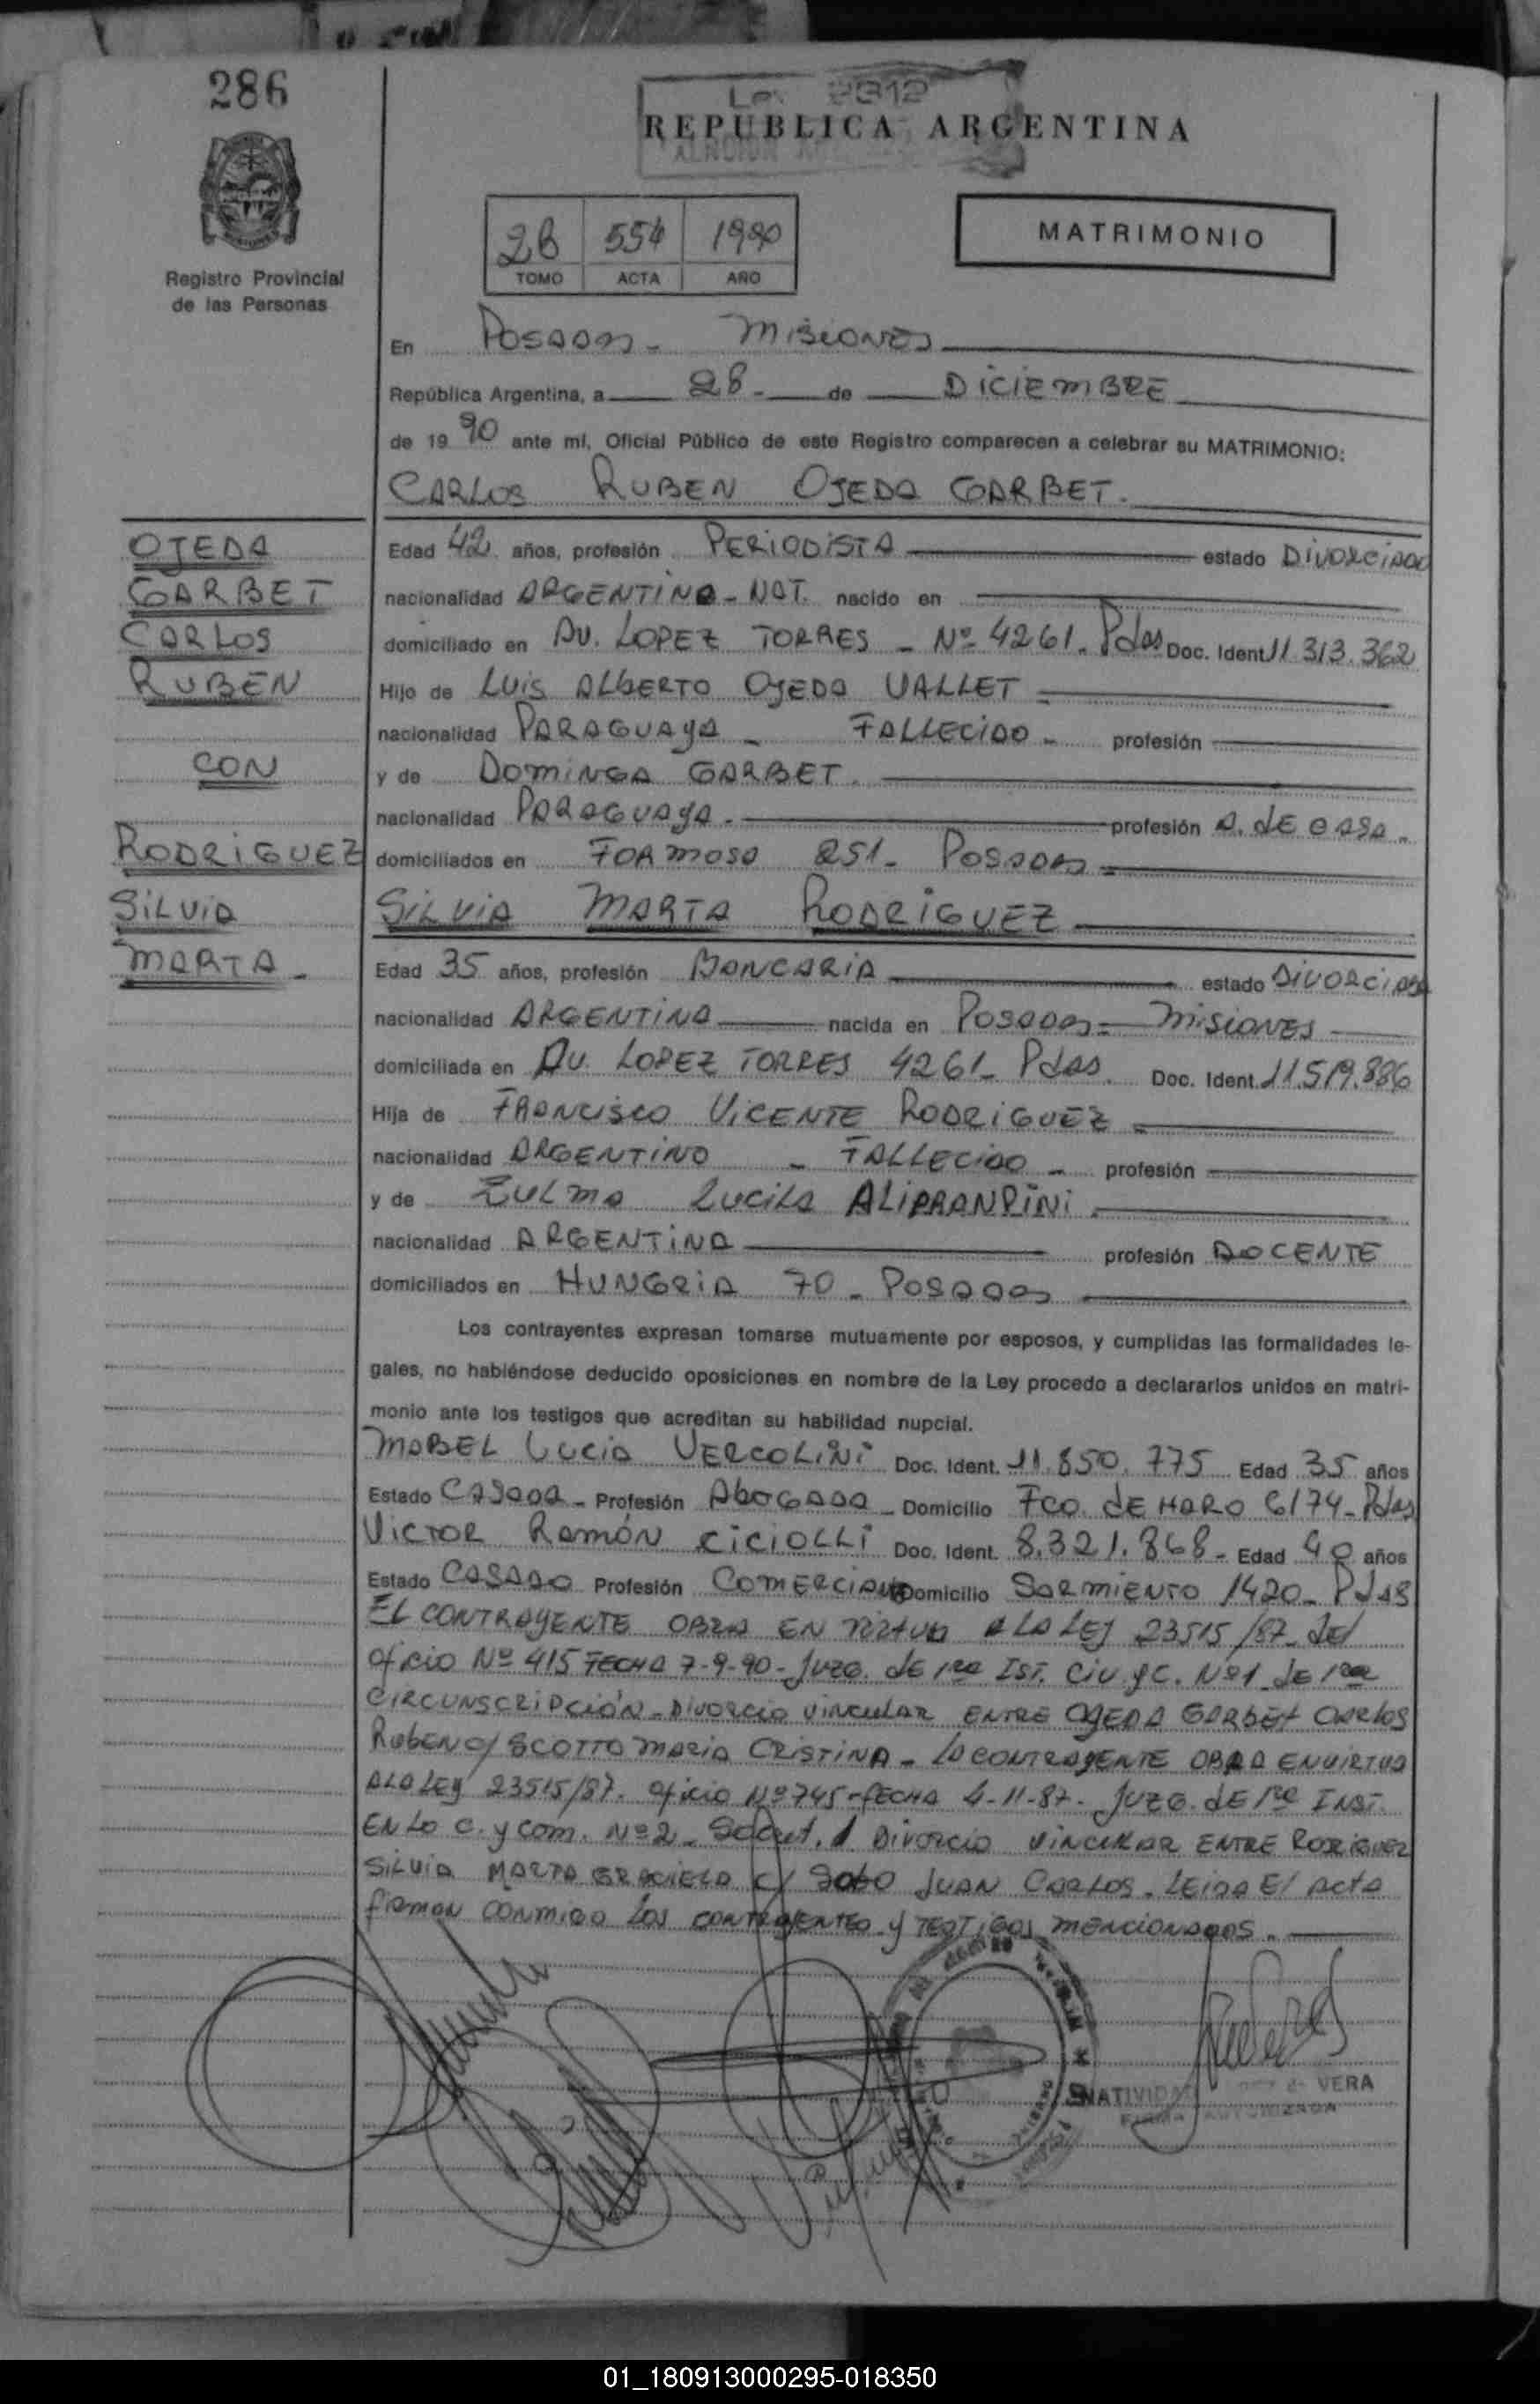 286
Ley 2812
REPUBLICA ARGENTINA
Registro Provincial
de las Personas
2B 554 1990
TOMO ACTA AÑO
MATRIMONIO
En POSADAS - MISIONES
República Argentina, a 28 - de DICIEMBRE
de 19 90 ante mí, Oficial Público de este Registro comparecen a celebrar su MATRIMONIO:
CARLOS RUBEN OJEDA GARBET.
OJEDA
GARBET
CARLOS
RUBEN
CON
RODRIGUEZ
SILVIA
MARTA -
Edad 42 años, profesión PERIODISTA estado DIVORCIADO
nacionalidad ARGENTINO - NAT. nacido en
domiciliado en AV. LOPEZ TORRES - Nº 4261 - Pdas Doc. Ident. 11.313.362
Hijo de LUIS ALBERTO OJEDA VALLET
nacionalidad PARAGUAYA - FALLECIDO - profesión
y de DOMINGA GARBET.
nacionalidad PARAGUAYA - profesión A. DE CASA -
domiciliados en FORMOSA 251 - POSADAS
SILVIA MARTA RODRIGUEZ
Edad 35 años, profesión BANCARIA estado DIVORCIADA
nacionalidad ARGENTINA nacida en POSADAS = MISIONES
domiciliada en AV. LOPEZ TORRES 4261 - Pdas. Doc. Ident. 11.519.886
Hija de FRANCISCO VICENTE RODRIGUEZ
nacionalidad ARGENTINO - FALLECIDO - profesión
y de ZULMA LUCILA ALIPRANDINI
nacionalidad ARGENTINA profesión DOCENTE
domiciliados en HUNGRIA 70 - POSADAS
Los contrayentes expresan tomarse mutuamente por esposos, y cumplidas las formalidades le-
gales, no habiéndose deducido oposiciones en nombre de la Ley procedo a declararlos unidos en matri-
monio ante los testigos que acreditan su habilidad nupcial.
MABEL LUCIA VERCOLINI Doc. Ident. 11.850.775 Edad 35 años
Estado CASADA - Profesión ABOGADA - Domicilio FCO. DE HARO 6174 - Pdas
VICTOR RAMÓN CICIOLLI Doc. Ident. 8.321.868 - Edad 40 años
Estado CASADO Profesión COMERCIANTE Domicilio SARMIENTO 1420 - Pdas
EL CONTRAYENTE OBRA EN VIRTUD A LA LEY 23515/87 - del
oficio Nº 415 FECHA 7-9-90 - JUZG. DE 1ra IST. CIV. y C. Nº 1 DE 1ra
CIRCUNSCRIPCIÓN - DIVORCIO VINCULAR ENTRE OJEDA GARBET CARLOS
RUBEN C/ SCOTTO MARIA CRISTINA - LA CONTRAYENTE OBRA EN VIRTUD
A LA LEY 23515/87. oficio Nº 745 - FECHA 4-11-87 - JUZG. DE 1ra INST.
EN LO C. y COM. Nº 2 - 1 DIVORCIO VINCULAR ENTRE RODRIGUEZ
SILVIA MARTA GRACIELA C/ SOTO JUAN CARLOS. LEIDA El Acta
firman CONMIGO LOS CONTRAYENTES y TESTIGOS MENCIONADOS.
NATIVIDAD de VERA
FIRMA AUTORIZADA
01_180913000295-018350